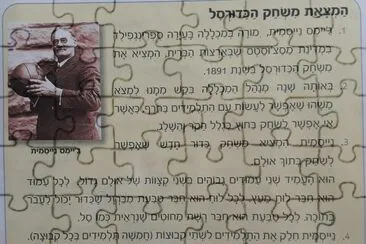 המצאת משחק הכדורסל
1. ג'יימס נייסמית, מורה במכללה בעיירה ספרינגפילד
במדינת מסצ'וסטס שבארצות הברית, המציא את
משחק הכדורסל בשנת 1891.
2. באותה שנה מנהל המכללה ביקש ממנו למצא
משהו שאפשר לעשות עם התלמידים בחורף, כאשר
אי אפשר לשחק בחוץ בגלל הקר והשלג.
3. נייסמית המציא משחק כדור חדש שאפשר
לשחק בתוך אולם.
הוא העמיד שני עמודים גבוהים בשני קצוות של אולם גדול. לכל עמוד
הוא חבר לוח מעץ. לכל לוח הוא חבר טבעת מברזל שכדור יכול לעבר
בתוכה. לכל טבעת הוא חבר רשת מחוטים שנראית כמו סל.
4. נייסמית חלק את התלמידים לשתי קבוצות (חמשה תלמידים בכל קבוצה).
ג'יימס נייסמית